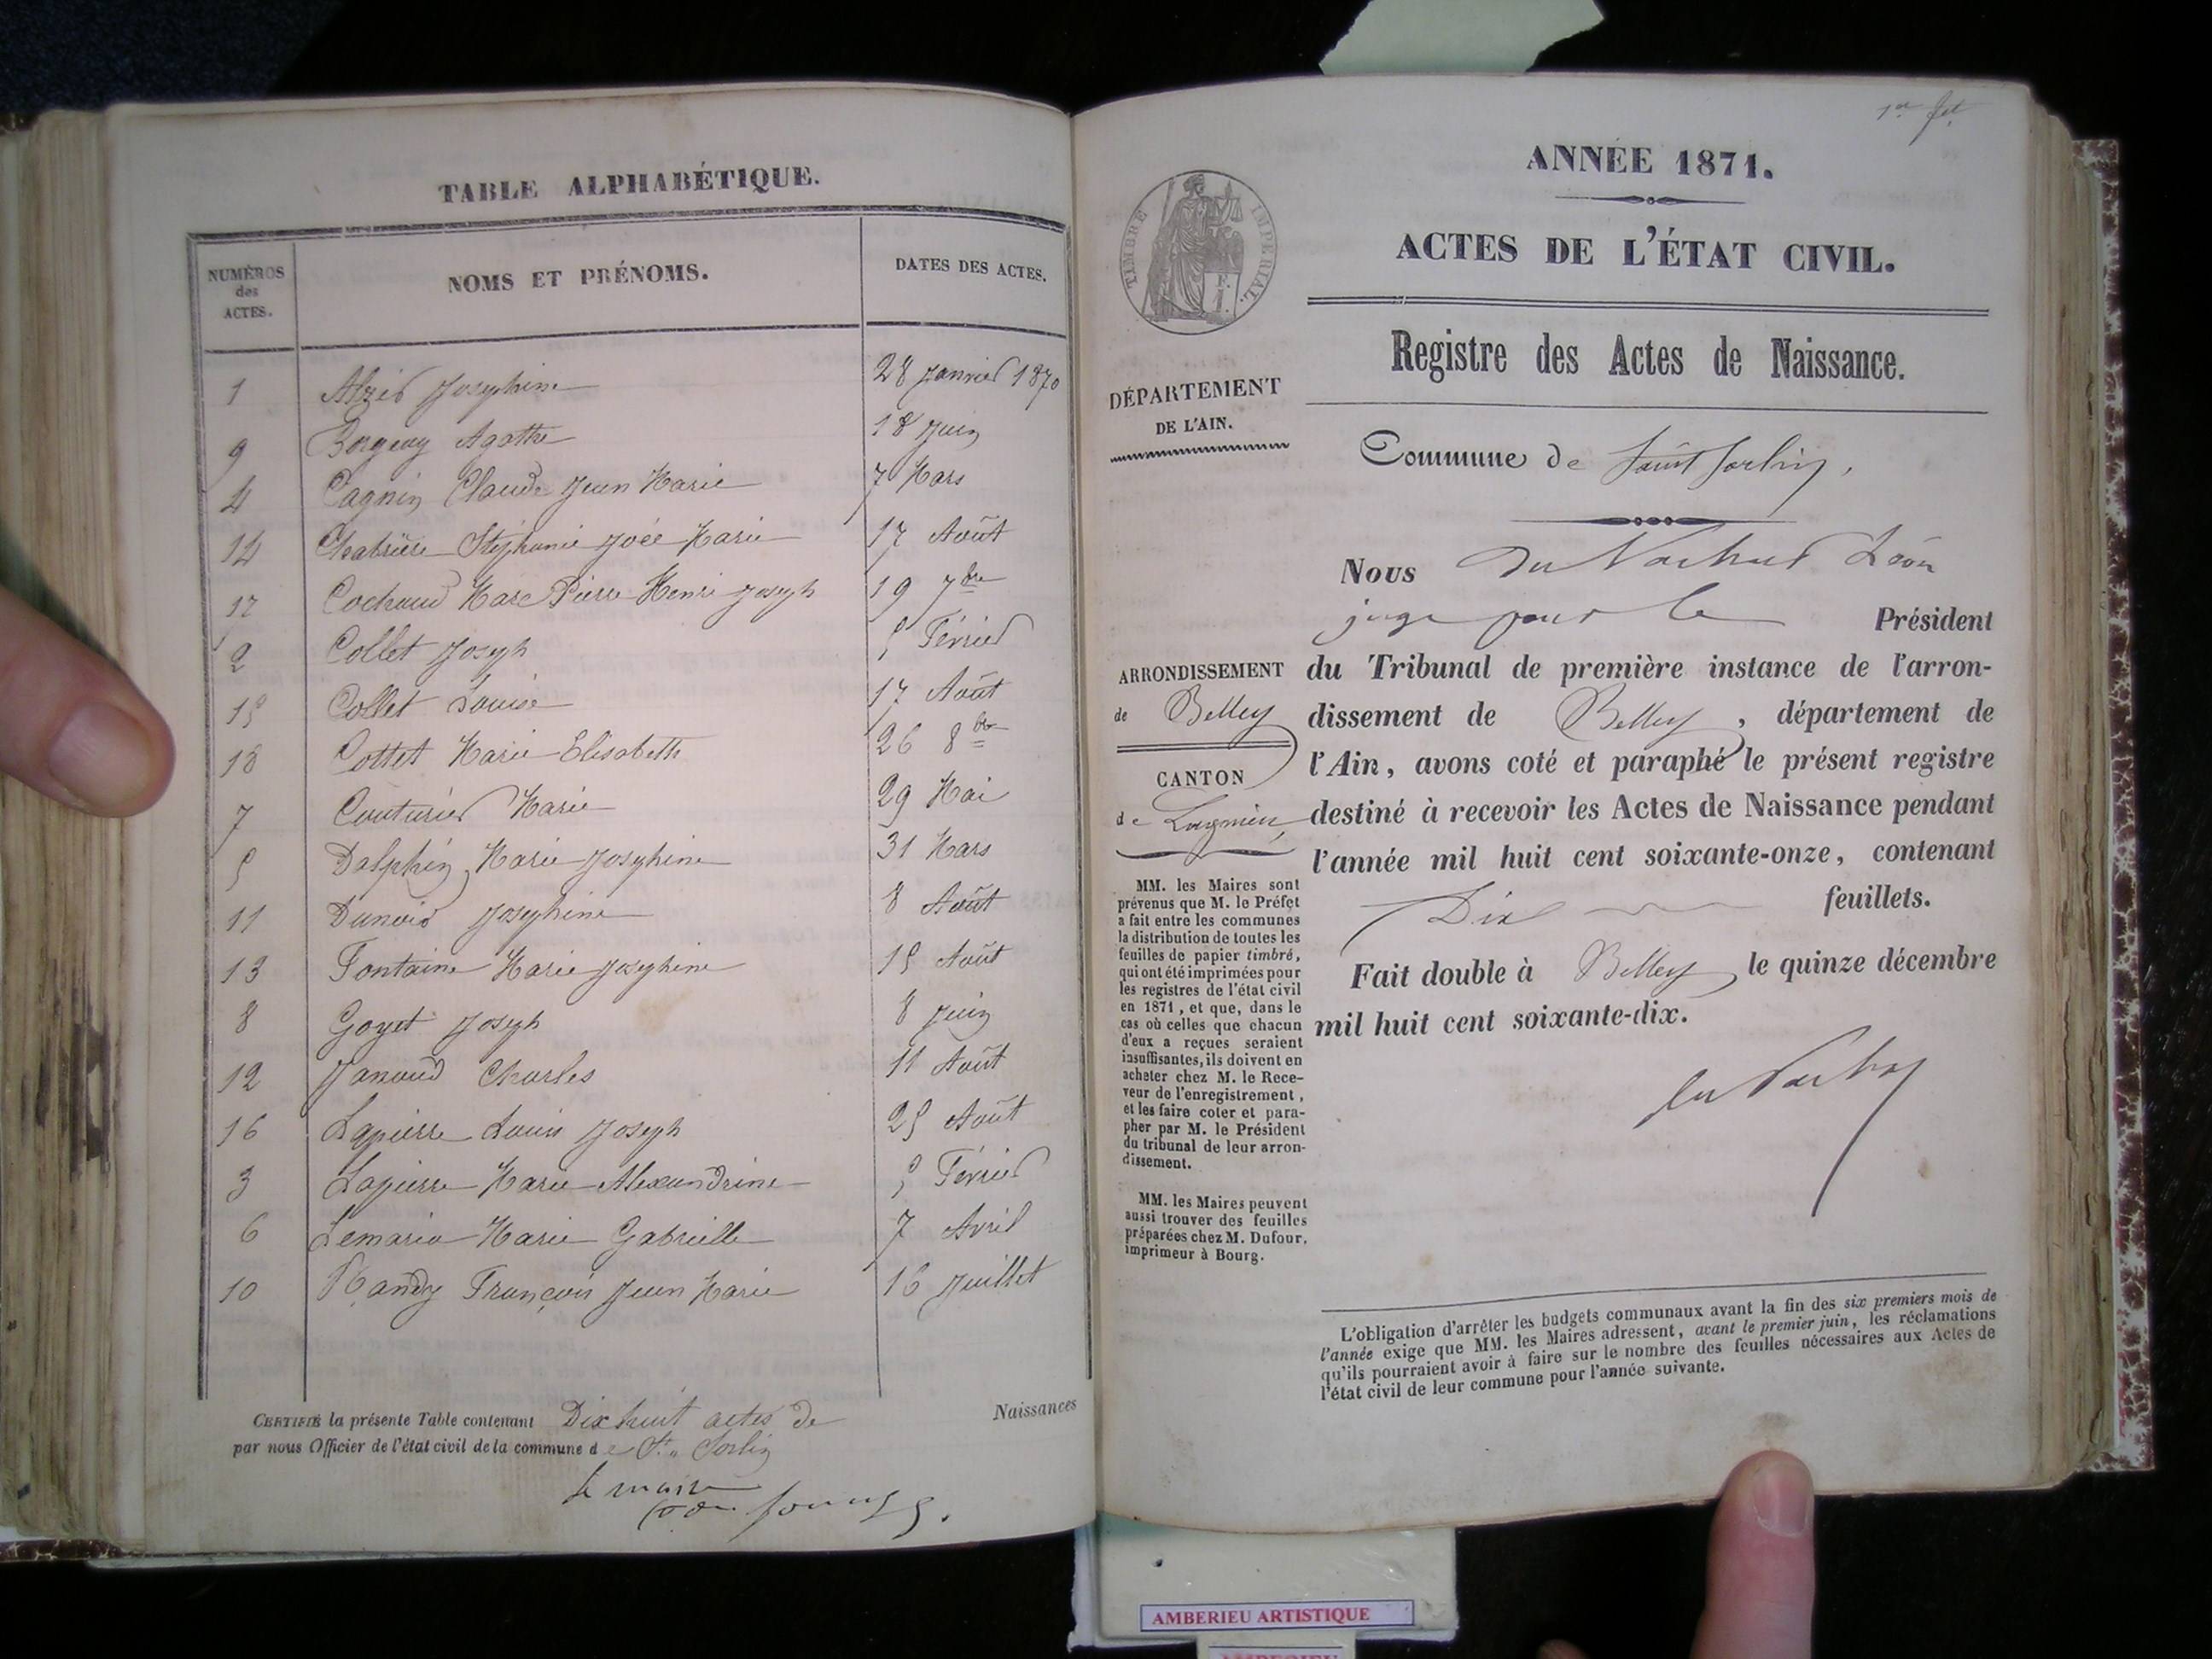 TABLE ALPHABÉTIQUE.
NUMÉROS des ACTES. NOMS ET PRÉNOMS. DATES DES ACTES.
1 Josephine 28 Janvier 1870
9 Agathe 18 Juin
4 Cagnin Claude Jean Marie 7 Mars
14 Chabrière Stéphanie Marie 17 Août
17 Cochaud Marc Pierre Henri Joseph 19 7bre
2 Collet Joseph 5 Février
15 Collet Louise 17 Août
18 Cottet Marie Elisabeth 26 8bre
7 Couturier Marie 29 Mai
5 Dalphin Marie Josephine 31 Mars
11 Dunoir Josephine 8 Août
13 Fontaine Marie Josephine 15 Août
8 Goyet Joseph 8 Juin
12 Janaud Charles 11 Août
16 Lapierre Louis Joseph 25 Août
3 Lapierre Marie Alexandrine 5 Février
6 Marie Gabrielle 7 Avril
10 Randy François Jean Marie 16 Juillet
CERTIFIÉ la présente Table contenant Dix huit actes de Naissances
par nous Officier de l'état civil de la commune de St. Sorlin
Le maire
1er fet
ANNÉE 1871.
ACTES DE L'ÉTAT CIVIL.
Registre des Actes de Naissance.
TIMBRE IMPÉRIAL.
DÉPARTEMENT
DE L'AIN.
Commune de Saint Sorlin,
Nous Léon
juge pour le Président
du Tribunal de première instance de l'arron-
dissement de Belley, département de
l'Ain, avons coté et paraphé le présent registre
destiné à recevoir les Actes de Naissance pendant
l'année mil huit cent soixante-onze, contenant
Dix feuillets.
Fait double à Belley le quinze décembre
mil huit cent soixante-dix.
ARRONDISSEMENT
de Belley
CANTON
de Lagnieu,
MM. les Maires sont
prévenus que M. le Préfet
a fait entre les communes
la distribution de toutes les
feuilles de papier timbré,
qui ont été imprimées pour
les registres de l'état civil
en 1871, et que, dans le
cas où celles que chacun
d'eux a reçues seraient
insuffisantes, ils doivent en
acheter chez M. le Rece-
veur de l'enregistrement,
et les faire coter et para-
pher par M. le Président
du tribunal de leur arron-
dissement.
MM. les Maires peuvent
aussi trouver des feuilles
préparées chez M. Dufour,
imprimeur à Bourg.
L'obligation d'arrêter les budgets communaux avant la fin des six premiers mois de
l'année exige que MM. les Maires adressent, avant le premier juin, les réclamations
qu'ils pourraient avoir à faire sur le nombre des feuilles nécessaires aux Actes de
l'état civil de leur commune pour l'année suivante.
AMBERIEU ARTISTIQUE